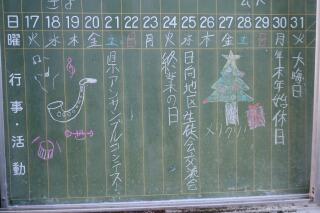 日 17 18 19 20 21 22 23 24 25 26 27 28 29 30 31
曜 火 水 木 金 土 日 月 火 水 木 金 土 日 月 火
行事・活動
県アンサンブルコンテスト
終業の日
日向地区生徒会交流会
メリクリ
年末年始休日
大晦日